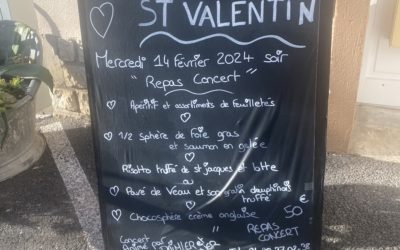 ST VALENTIN
Mercredi 14 Février 2024 soir
" Repas Concert "
Apéritif et assortiments de feuilletés
1/2 sphère de Foie gras
et saumon en gelée
Risotto truffé de st jacques et lotte
ou
Pavé de Veau et son gratin dauphinois
truffé
Chocosphère crème anglaise
50 €
REPAS
CONCERT
Concert par